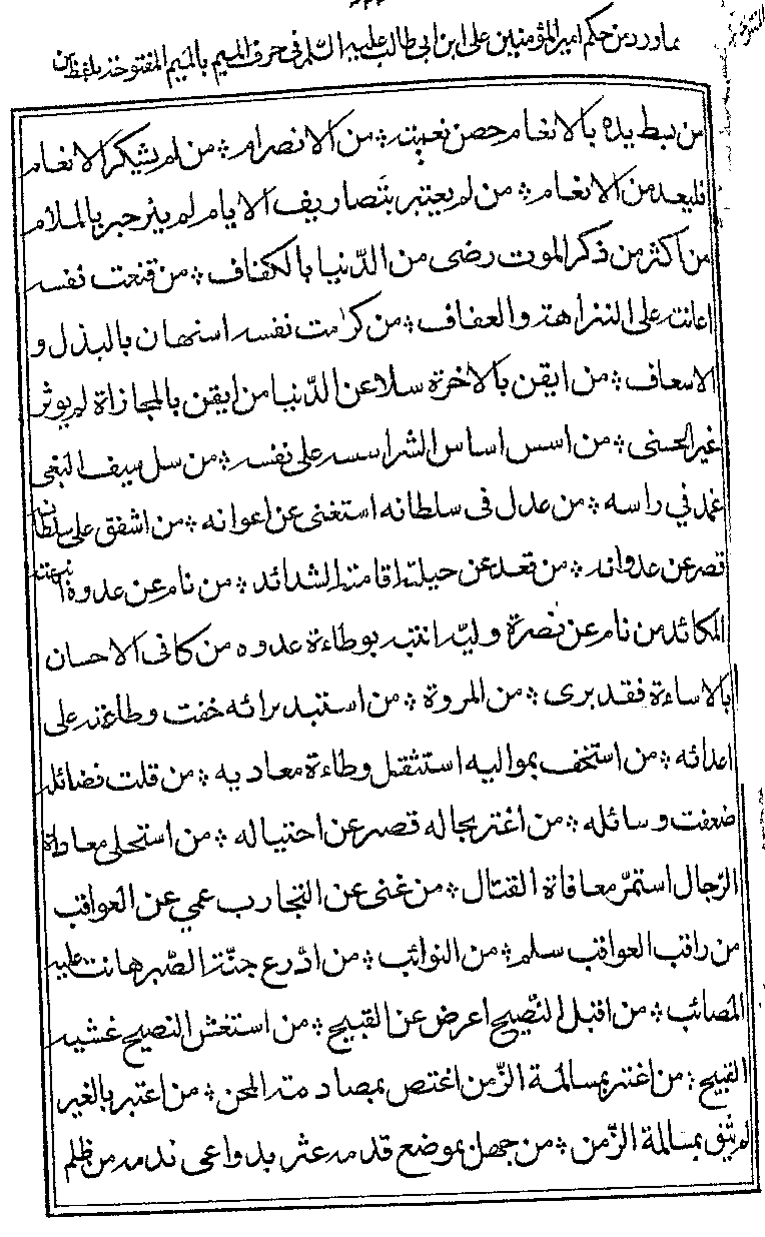 مما ورد من حكم امير المؤمنين على ابن ابى طالب عليه السلام فى حرف الميم بالميم المفتوحة بلفظ من
من بسط يده بالانعام حصن نعمته ؞ من الانصرام ؞ من لم يشكر الانعام
فليعد من الانعام ؞ من لم يعتبر بتصاريف الايام لم ينزجر بالملام
من اكثر من ذكر الموت رضى من الدّنيا بالكفاف ؞ من قنعت نفسه
اعانته على النزاهة والعفاف ؞ من كرمت نفسه استهان بالبذل و
الاسعاف ؞ من ايقن بالاخرة سلا عن الدّنيا من ايقن بالمجازاة لم يوثر
غير الحسنى ؞ من اسس اساس الشر اسسه على نفسه ؞ من سل سيف البغى
غمد في راسه ؞ من عدل فى سلطانه استغنى عن اعوانه ؞ من اشفق على سلطانه
قصر عن عدوانه ؞ من قعد عن حيلته اقامته الشدائد ؞ من نام عن عدوه انبهته
المكائد من نام عن نصرة وليّه انتبه بوطاءة عدوه من كافى الاحسان
بالاساءة فقد برى ؞ من المروة ؞ من استبد برائه خفت وطاءته على
اعدائه ؞ من استخف بمواليه استثقل وطاءة معاديه ؞ من قلت فضائله
ضعفت وسائله ؞ من اغتر بحاله قصر عن احتياله ؞ من استحلى معاداة
الرّجال استمرّ معافاة القتال ؞ من غنى عن التجارب عمي عن العواقب
من راقب العواقب سلم ؞ من النوائب ؞ من ادّرع جنّة الصّبر هانت عليه
المصائب ؞ من اقبل النّصيح اعرض عن القبيح ؞ من استغش النصيح غشيه
القبيح ؞ من اغتر بمسالمة الزّمن اغتص بمصادمة المحن ؞ من اعتبر بالغير
لم يثق بمسالمة الزّمن ؞ من جهل بموضع قدمه عثر بدواعى ندمه من ظلم